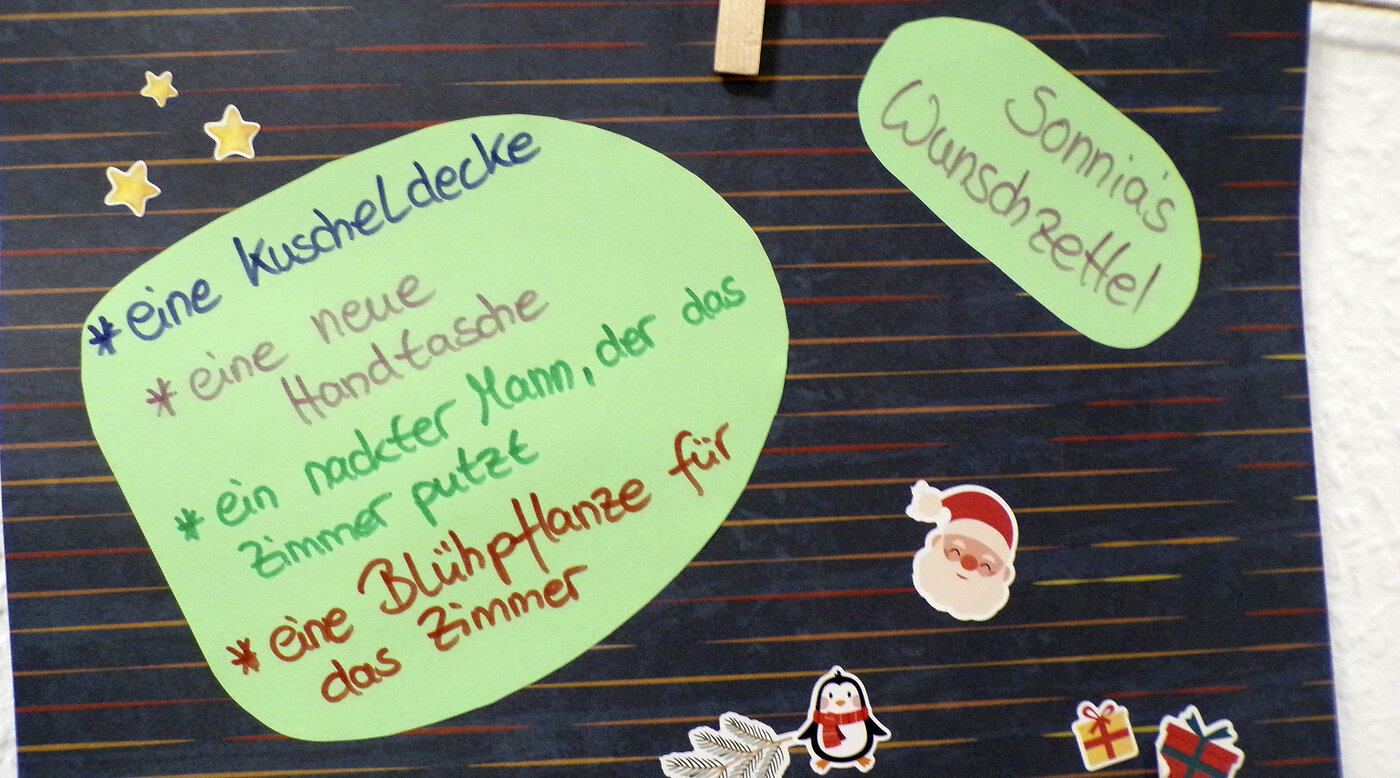 Sonnia's
Wunschzettel
* eine Kuscheldecke
* eine neue
Handtasche
* ein nackter Mann, der das
Zimmer putzt
* eine Blühpflanze für
das Zimmer